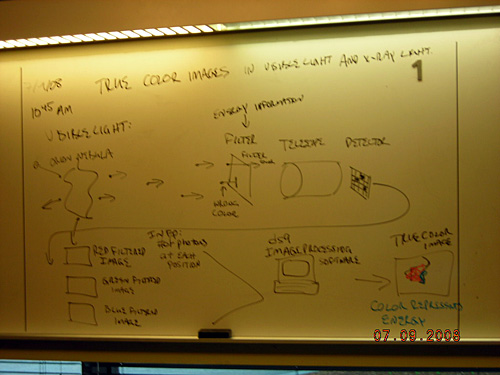 TRUE COLOR IMAGES IN VISIBLE LIGHT AND X-RAY LIGHT.
1
10:45 AM
VISIBLE LIGHT:
ENERGY INFORMATION
ORION NEBULA
FILTER
TELESCOPE
DETECTOR
FILTER
WRONG
COLOR
RED FILTERED
IMAGE
GREEN FILTERED
IMAGE
BLUE FILTERED
IMAGE
INFO:
# of photons
at each
position
ds9
IMAGE PROCESSING
SOFTWARE
TRUE COLOR
IMAGE
COLOR REPRESENTS
ENERGY
07.09.2008